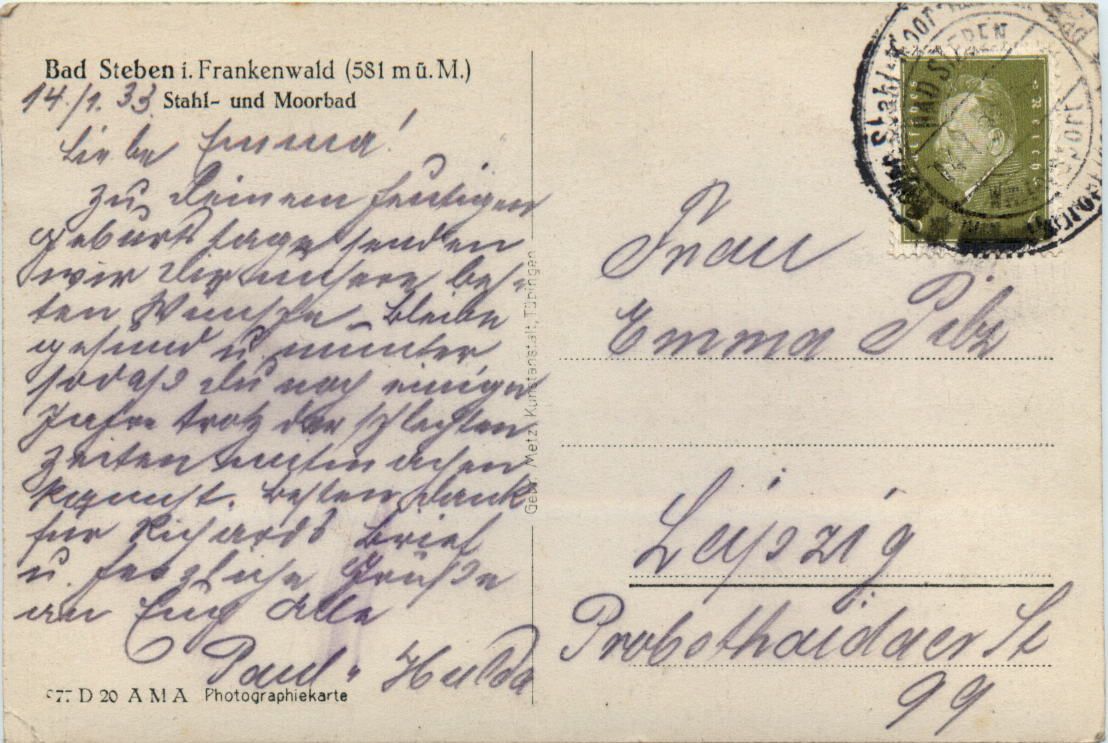 Bad Steben i. Frankenwald (581 m ü. M.)
14./1. 33 Stahl- und Moorbad
Liebe Emma!
Zu Deinem heutigen
Geburtstage senden
wir Dir unsere bes-
ten Wünsche. Bleibe
gesund u. munter
sodaß Du noch einige
Jahre trotz der schlechten
Zeiten mitmachen
kannst. Besten Dank
für Richards Brief
u. herzliche Grüße
an Euch Alle
Paul u. Hulda
977 D 20 A M A Photographiekarte
Gebr. Metz, Kunstanstalt, Tübingen
BAD STEBEN
Deutsches Reich
6
Frau
Emma Pilz
Leipzig
Probsthaidaer St
99